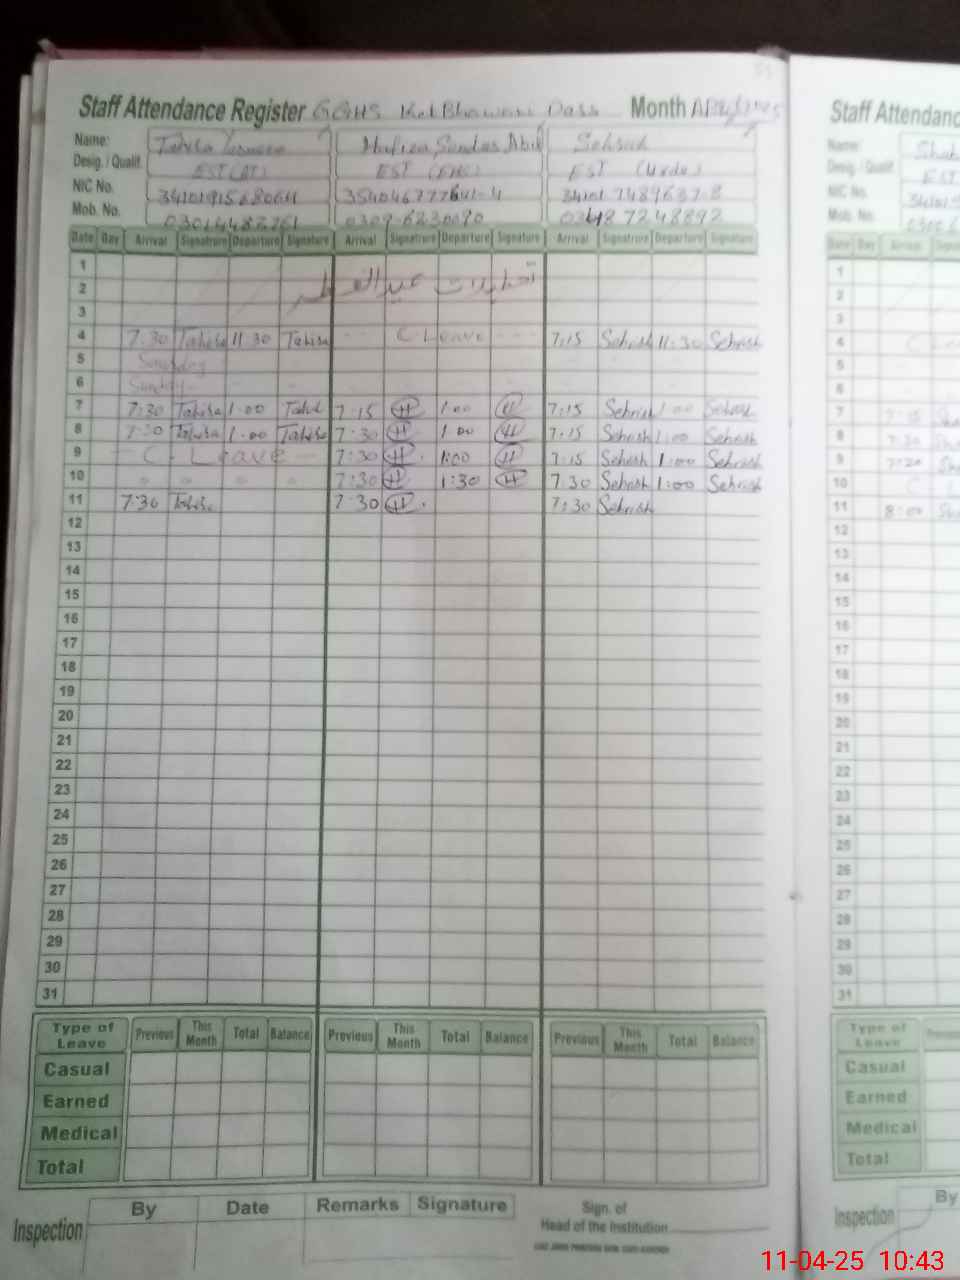 Staff Attendance Register GGHS Kot Bhawani Dass Month April/2025
Name: Tahira Hafiza Sundas Sehrish
Desig. / Qualif. EST (AT) EST (Eng) EST (Urdu)
NIC No. 34101 7489637-8
Mob. No. 03014482761 0309-6230090 0348 7248892
Date Day Arrival Signature Departure Signature Arrival Signature Departure Signature Arrival Signature Departure Signature
1
2 تعطیلات عید الفطر
3
4 7:30 Tahira 11:30 Tahira C Leave 7:15 Sehrish 11:30 Sehrish
5
6 Sunday
7 7:30 Tahira 1:00 Tahira 7:15 H 1:00 H 7:15 Sehrish 1:00 Sehrish
8 7:30 Tahira 1:00 Tahira 7:30 H 1:00 H 7:15 Sehrish 1:00 Sehrish
9 C. Leave 7:30 H 1:00 H 7:15 Sehrish 1:00 Sehrish
10 7:30 H 1:30 H 7:30 Sehrish 1:00 Sehrish
11 7:30 Tahira 7:30 H 7:30 Sehrish
12
13
14
15
16
17
18
19
20
21
22
23
24
25
26
27
28
29
30
31
Type of Leave Previous This Month Total Balance Previous This Month Total Balance Previous This Month Total Balance
Casual
Earned
Medical
Total
Inspection By Date Remarks Signature
Sign. of
Head of the Institution
Staff Attendance
Name:
Desig. / Qualif. EST
NIC No.
Mob. No.
Date Day Arrival
1
2
3
4 C
5
6
7 7:15
8 7:30
9 7:20
10 C
11 8:00
12
13
14
15
16
17
18
19
20
21
22
23
24
25
26
27
28
29
30
31
Type of Leave
Casual
Earned
Medical
Total
Inspection By
11-04-25 10:43